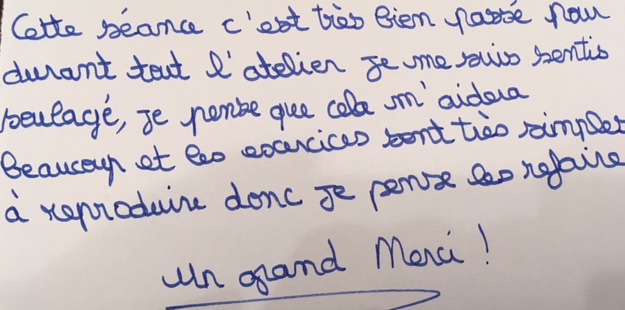 Cette séance c'est très bien passé pour
durant tout l'atelier je me suis sentis
soulagé, je pense que cela m'aidera
Beaucoup et les exercices sont très simples
à reproduire donc je pense les refaire
Un grand Merci !